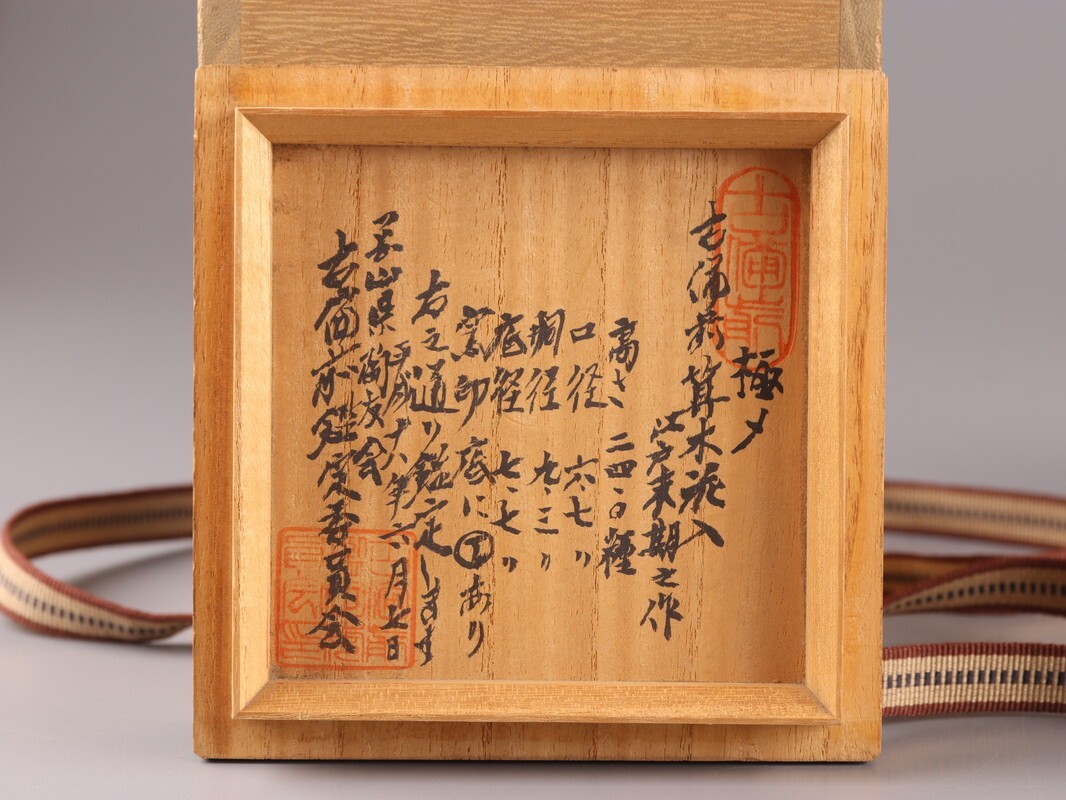 極メ
古備前算木花入
江戸末期之作
高さ 二四・〇糎
口径 六・七〃
胴径 九・三〃
底径 七・七〃
窯印 底に あり
右之通り鑑定します
平成十八年六月七日
岡山県陶友会
古備前鑑定委員会
古備前